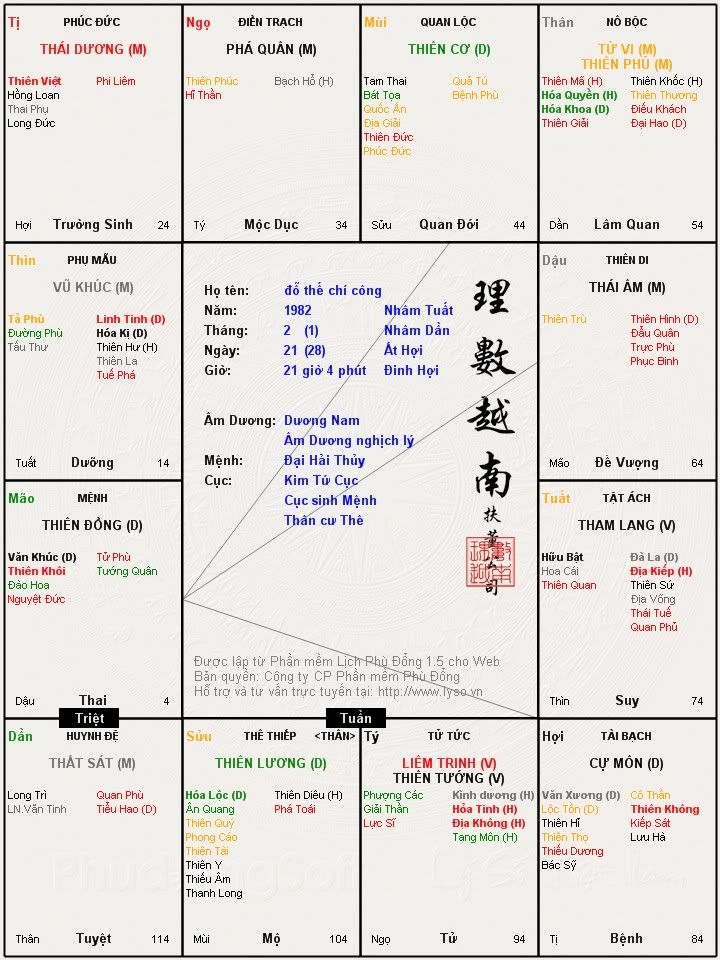 Tị PHÚC ĐỨC
THÁI DƯƠNG (M)
Thiên Việt Phi Liêm
Hồng Loan
Thai Phụ
Long Đức
Hợi Trường Sinh 24
Ngọ ĐIỀN TRẠCH
PHÁ QUÂN (M)
Thiên Phúc Bạch Hổ (H)
Hỉ Thần
Tý Mộc Dục 34
Mùi QUAN LỘC
THIÊN CƠ (D)
Tam Thai Quả Tú
Bát Tọa Bệnh Phù
Quốc Ấn
Địa Giải
Thiên Đức
Phúc Đức
Sửu Quan Đới 44
Thân NÔ BỘC
TỬ VI (M)
THIÊN PHỦ (M)
Thiên Mã (H) Thiên Khốc (H)
Hóa Quyền (H) Thiên Thương
Hóa Khoa (D) Điếu Khách
Thiên Giải Đại Hao (D)
Dần Lâm Quan 54
Thìn PHỤ MẪU
VŨ KHÚC (M)
Tả Phù Linh Tinh (D)
Đường Phù Hóa Kị (D)
Tấu Thư Thiên Hư (H)
Thiên La
Tuế Phá
Tuất Dưỡng 14
Họ tên: đỗ thế chí công
Năm: 1982 Nhâm Tuất
Tháng: 2 (1) Nhâm Dần
Ngày: 21 (28) Ất Hợi
Giờ: 21 giờ 4 phút Đinh Hợi
Âm Dương: Dương Nam
Âm Dương nghịch lý
Mệnh: Đại Hải Thủy
Cục: Kim Tứ Cục
Cục sinh Mệnh
Thân cư Thê
理數越南
扶董公司
Được lập từ Phần mềm Lịch Phù Đổng 1.5 cho Web
Bản quyền: Công ty CP Phần mềm Phù Đổng
Hỗ trợ và tư vấn trực tuyến tại: http://www.lyso.vn
Dậu THIÊN DI
THÁI ÂM (M)
Thiên Trù Thiên Hình (D)
Đẩu Quân
Trực Phù
Phục Binh
Mão Đế Vượng 64
Mão MỆNH
THIÊN ĐỒNG (D)
Văn Khúc (D) Tử Phù
Thiên Khôi Tướng Quân
Đào Hoa
Nguyệt Đức
Dậu Thai 4
Tuất TẬT ÁCH
THAM LANG (V)
Hữu Bật Đà La (D)
Hoa Cái Địa Kiếp (H)
Thiên Quan Thiên Sứ
Địa Võng
Thái Tuế
Quan Phủ
Thìn Suy 74
Triệt
Tuần
Dần HUYNH ĐỆ
THẤT SÁT (M)
Long Trì Quan Phù
LN.Văn Tinh Tiểu Hao (D)
Thân Tuyệt 114
Sửu THÊ THIẾP <THÂN>
THIÊN LƯƠNG (D)
Hóa Lộc (D) Thiên Diêu (H)
Ân Quang Phá Toái
Thiên Quý
Phong Cáo
Thiên Tài
Thiên Y
Thiếu Âm
Thanh Long
Mùi Mộ 104
Tý TỬ TỨC
LIÊM TRINH (V)
THIÊN TƯỚNG (V)
Phượng Các Kình dương (H)
Giải Thần Hỏa Tinh (H)
Lực Sĩ Địa Không (H)
Tang Môn (H)
Ngọ Tử 94
Hợi TÀI BẠCH
CỰ MÔN (D)
Văn Xương (D) Cô Thần
Lộc Tồn (D) Thiên Không
Thiên Hỉ Kiếp Sát
Thiên Thọ Lưu Hà
Thiếu Dương
Bác Sỹ
Tị Bệnh 84